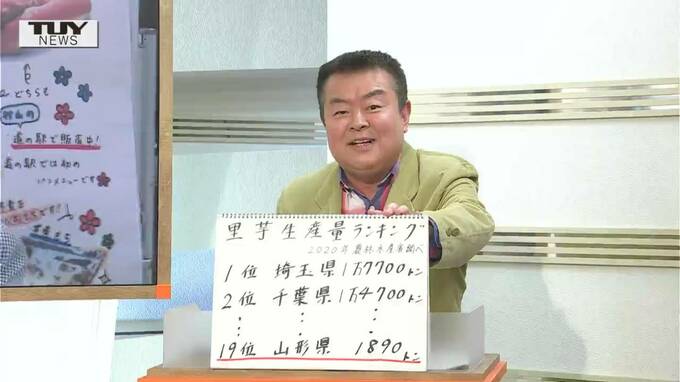 TUY
NEWS
どちらも
道の駅で販売中!
道の駅では初の
メニューです
里芋生産量ランキング
2020年農林水産省調べ
1位 埼玉県 1万7700トン
2位 千葉県 1万4700トン
: : :
19位 山形県 1890トン